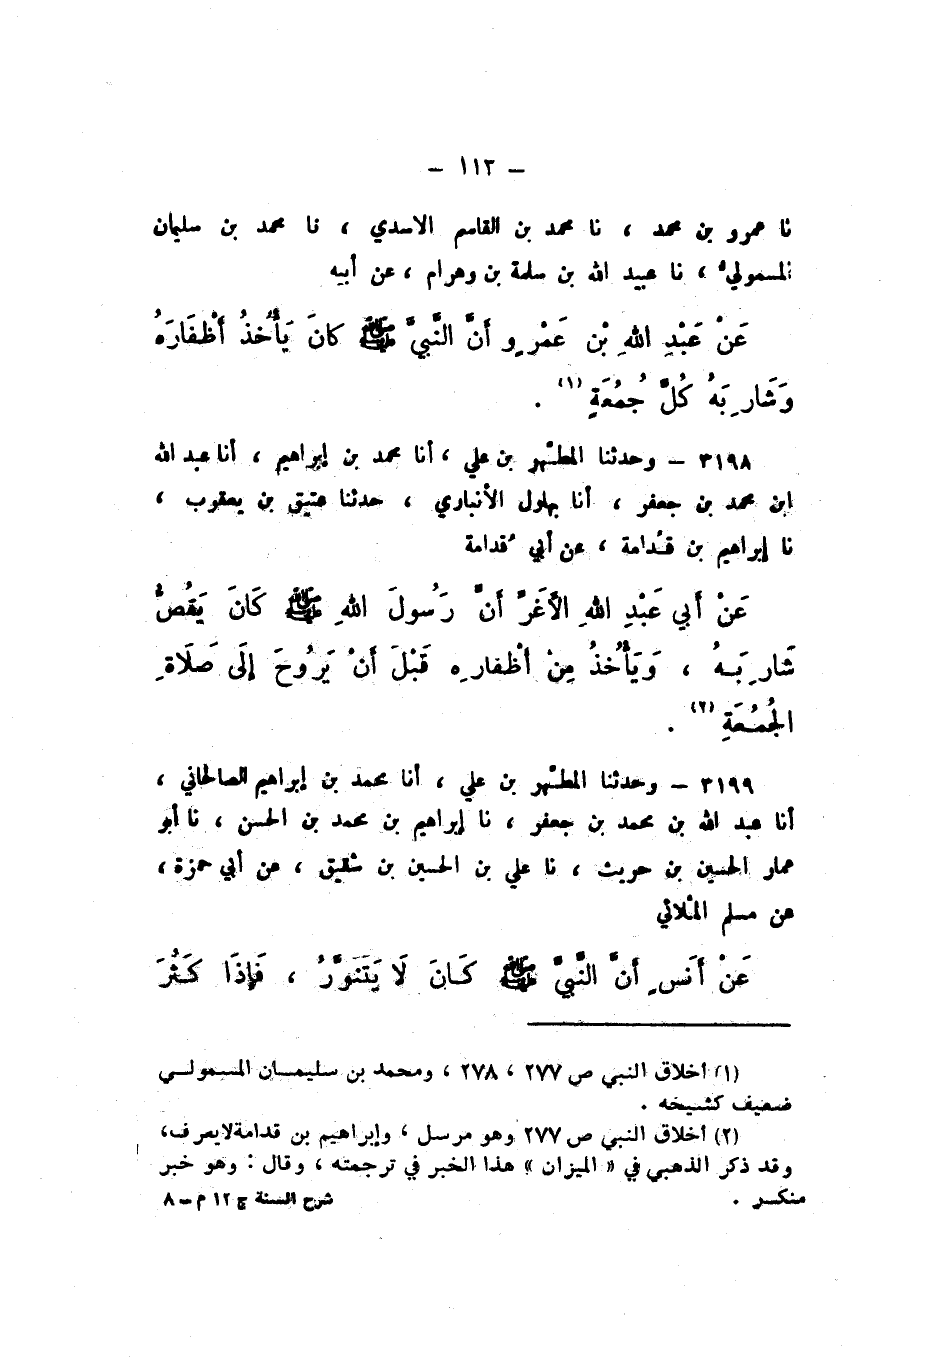 – ١١٣ –
نا عمرو بن محمد ، نا محمد بن القاسم الاسدي ، نا محمد بن سليمان
المسمولي ، نا عبيد الله بن سلمة بن وهرام ، عن أبيه
عَنْ عَبْدِ اللهِ بْنِ عَمْرٍو أَنَّ النَّبِيَّ ﷺ كانَ يَأْخُذُ أَظْفَارَهُ
وَشَارِبَهُ كُلَّ جُمُعَةٍ (١) .
٣١٩٨ – وحدثنا المطهّر بن علي ، أنا محمد بن إبراهيم ، أنا عبد الله
ابن محمد بن جعفر ، أنا بهلول الأنباري ، حدثنا عتيق بن يعقوب ،
نا إبراهيم بن قُدامة ، عن أبي قُدامة
عَنْ أَبي عَبْدِ اللهِ الأَغَرِّ أَنَّ رَسُولَ اللهِ ﷺ كَانَ يَقُصُّ
شَارِبَهُ ، وَيَأْخُذُ مِنْ أَظْفارِهِ قَبْلَ أَنْ يَرُوحَ إِلَى صَلَاةِ
الجُمُعَةِ (٢) .
٣١٩٩ – وحدثنا المطهّر بن علي ، أنا محمد بن إبراهيم الصالحاني ،
أنا عبد الله بن محمد بن جعفر ، نا إبراهيم بن محمد بن الحسن ، نا أبو
عمار الحسين بن حريث ، نا علي بن الحسين بن شقيق ، عن أبي حمزة ،
عن مسلم المُلائي
عَنْ أَنَسٍ أَنَّ النَّبِيَّ ﷺ كَانَ لَا يَتَنَوَّرُ ، فَإِذَا كَثُرَ
(١) أخلاق النبي ص ٢٧٧ ، ٢٧٨ ، ومحمد بن سليمان المسمولي
ضعيف كشيخه .
(٢) أخلاق النبي ص ٢٧٧ وهو مرسل ، وإبراهيم بن قدامة لايعرف،
وقد ذكر الذهبي في « الميزان » هذا الخبر في ترجمته ، وقال : وهو خبر
منكر .
شرح السنة ج ١٢ م – ٨